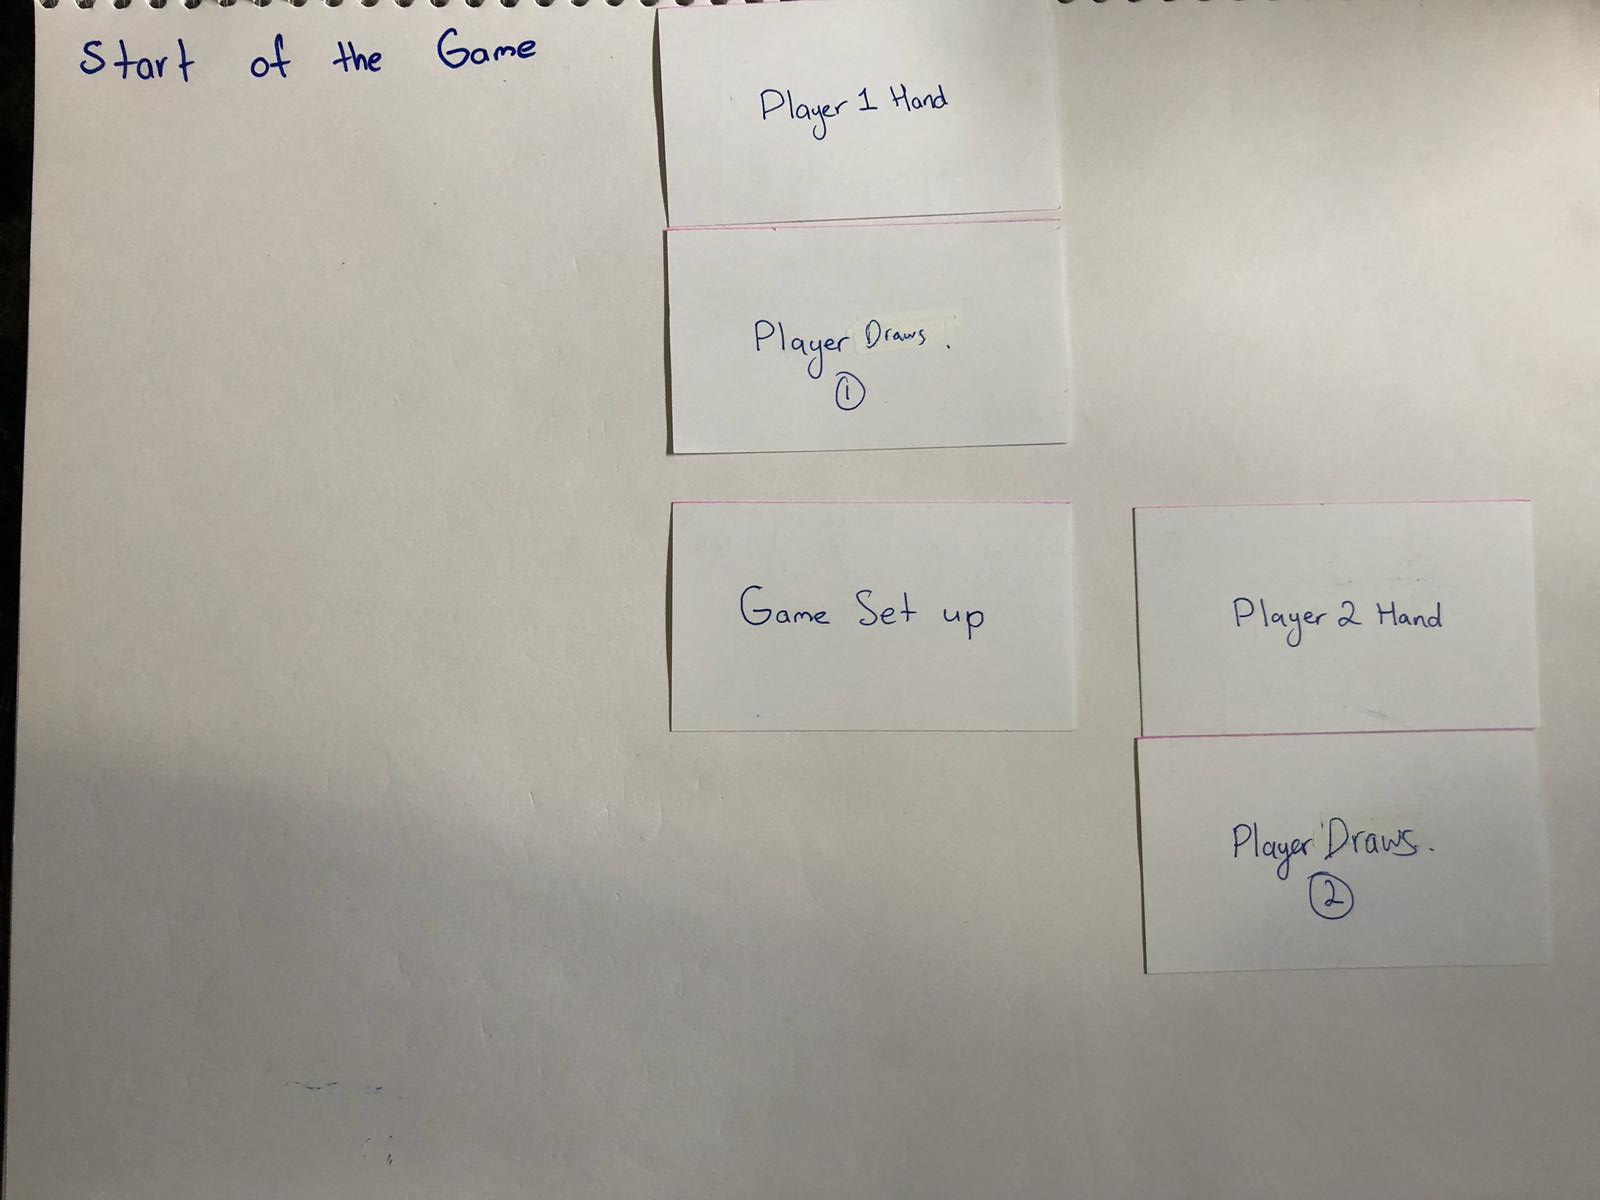 Start of the Game
Player 1 Hand
Player Draws.
1
Game Set up
Player 2 Hand
Player Draws.
2